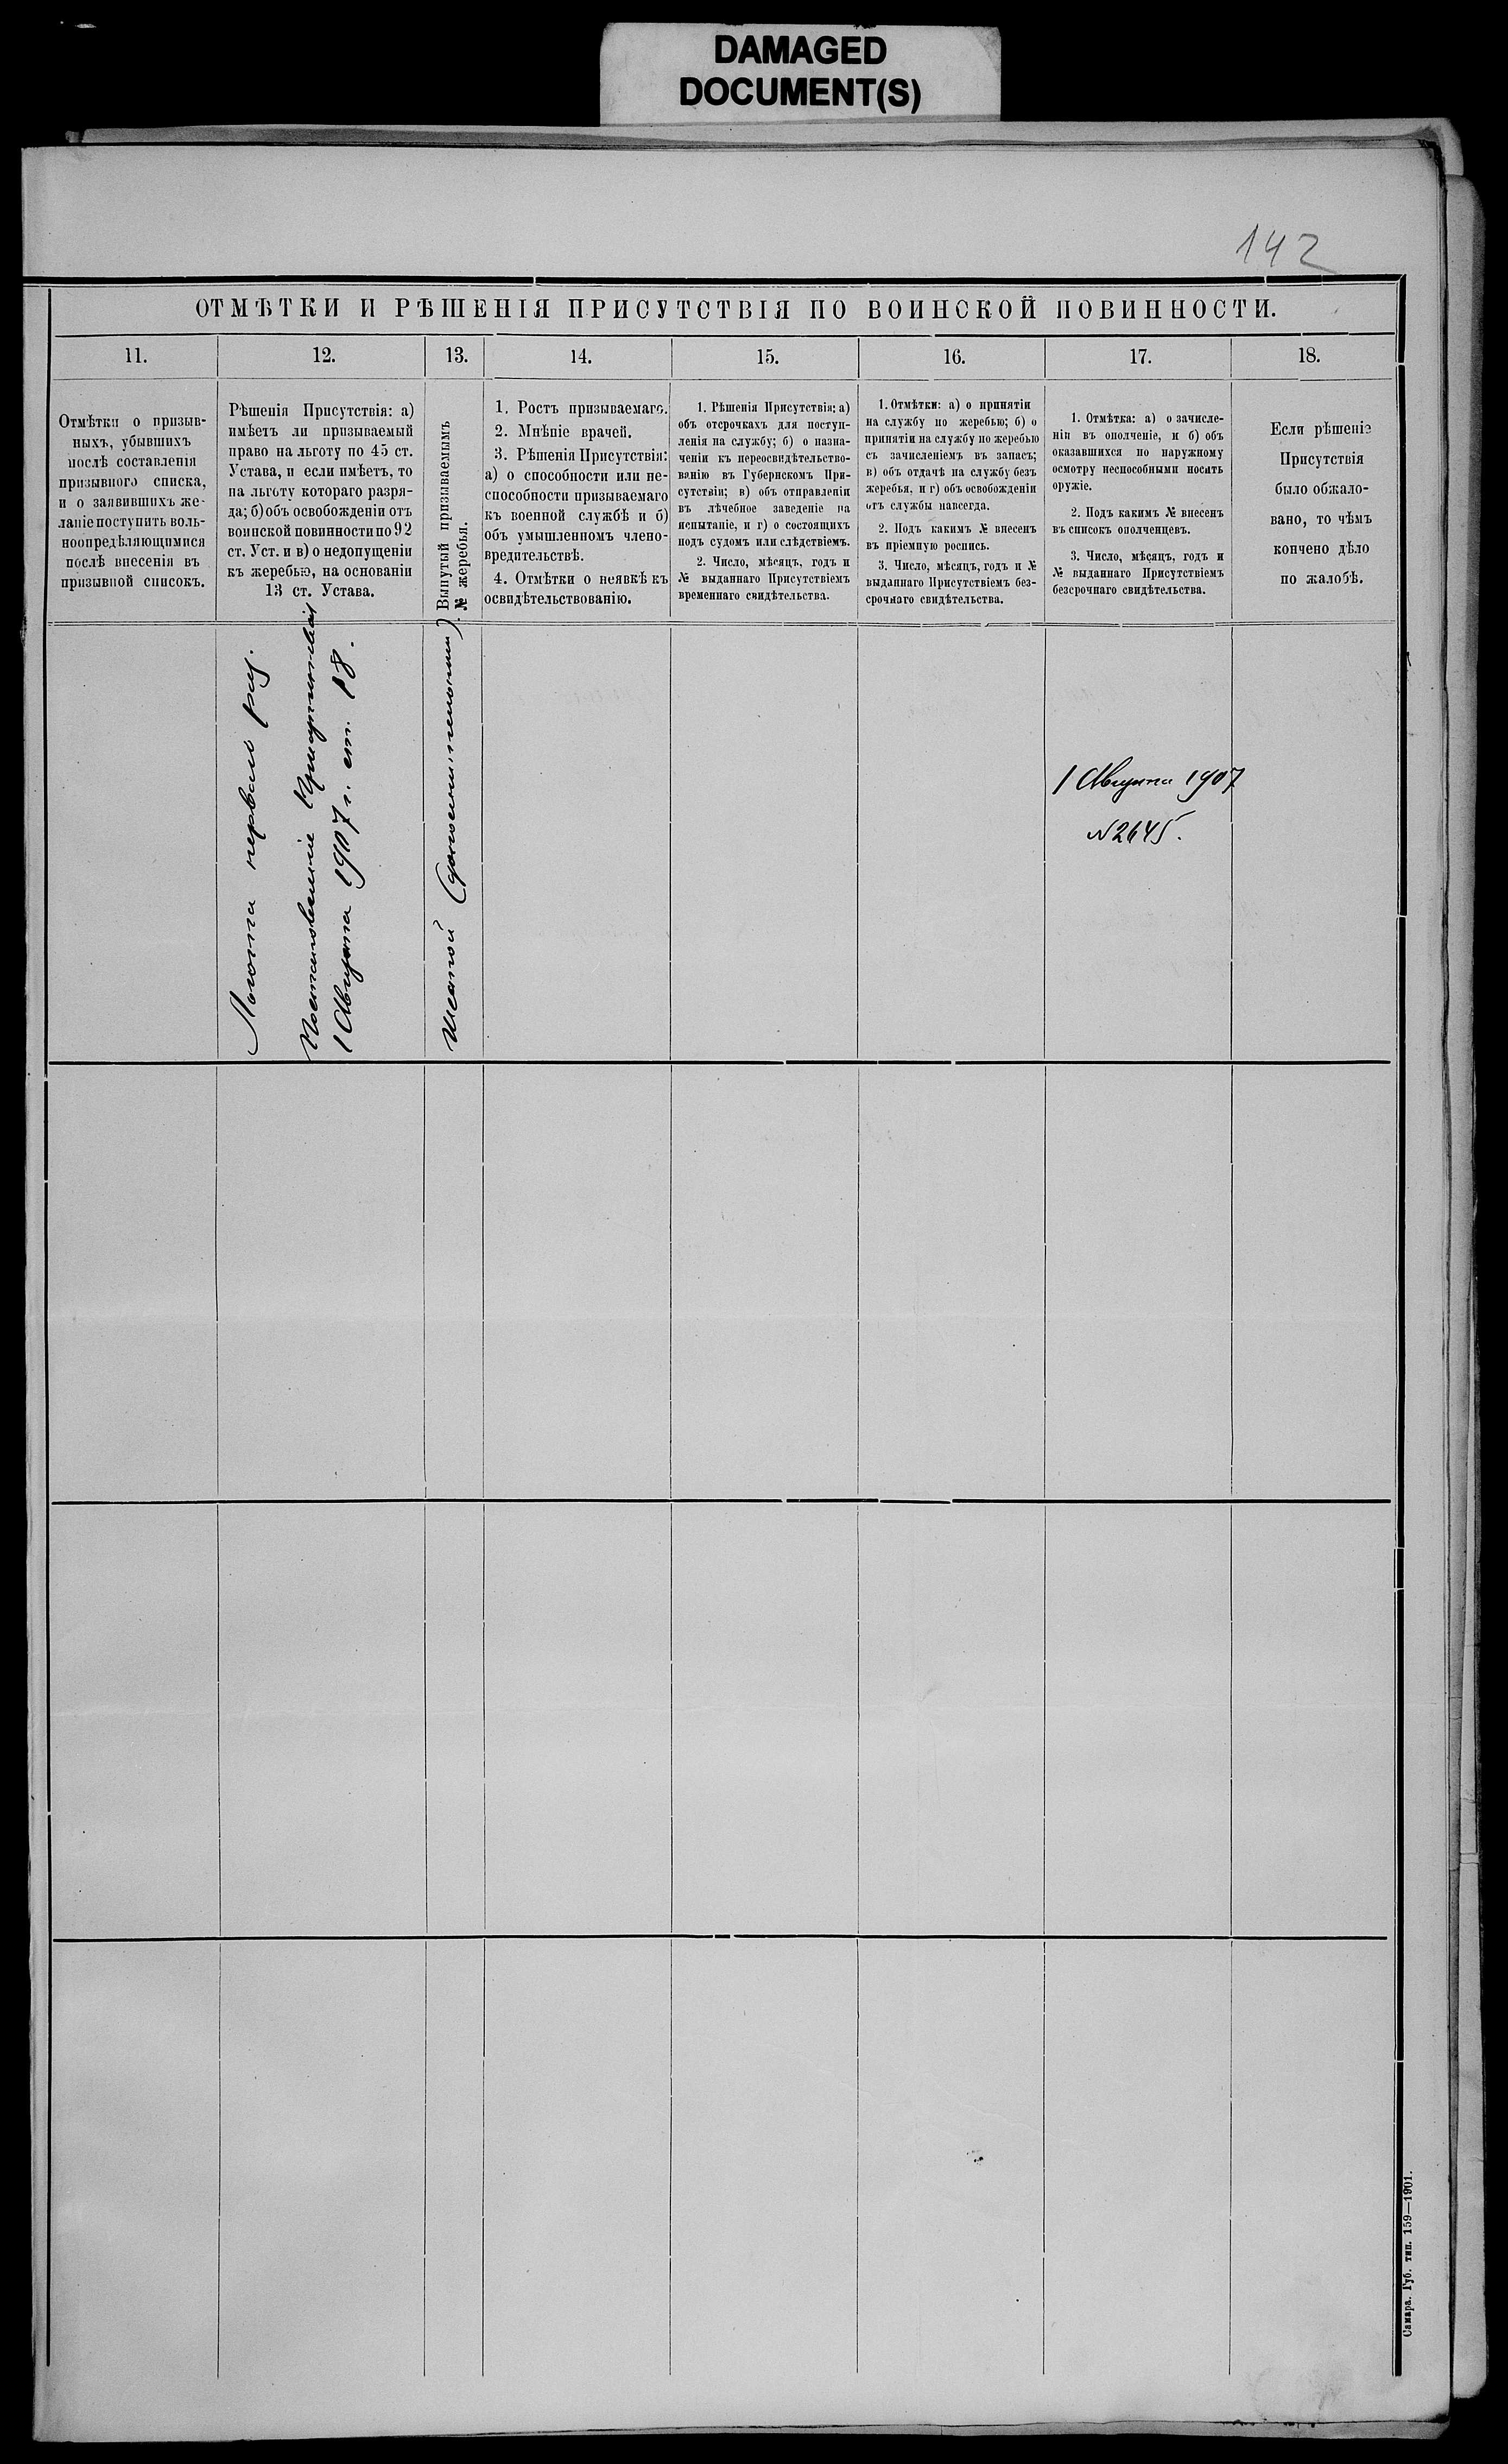 DAMAGED
DOCUMENT(S)
142
ОТМѢТКИ И РѢШЕНІЯ ПРИСУТСТВІЯ ПО ВОИНСКОЙ ПОВИННОСТИ.
11.
12.
13.
14.
15.
16.
17.
18.
Отмѣтки о призыв-
ныхъ, убывшихъ
послѣ составленія
призывного списка,
и о заявившихъ же-
ланіе поступить воль-
ноопредѣляющимися
послѣ внесенія въ
призывной списокъ.
Рѣшенія Присутствія: а)
имѣетъ ли призываемый
право на льготу по 45 ст.
Устава, и если имѣетъ, то
на льготу котораго разря-
да; б) объ освобожденіи отъ
воинской повинности по 92
ст. Уст. и в) о недопущеніи
къ жеребью, на основаніи
13 ст. Устава.
Вынутый призываемымъ
№ жеребья.
1. Ростъ призываемаго.
2. Мнѣніе врачей.
3. Рѣшенія Присутствія:
а) о способности или не-
способности призываемаго
къ военной службѣ и б)
объ умышленномъ члено-
вредительствѣ.
4. Отмѣтки о неявкѣ къ
освидѣтельствованію.
1. Рѣшенія Присутствія: а)
объ отсрочкахъ для поступ-
ленія на службу; б) о назна-
ченіи къ переосвидѣтельство-
ванію въ Губернскомъ При-
сутствіи; в) объ отправленіи
въ лѣчебное заведеніе на
испытаніе, и г) о состоящихъ
подъ судомъ или слѣдствіемъ.
2. Число, мѣсяцъ, годъ и
№ выданнаго Присутствіемъ
временнаго свидѣтельства.
1. Отмѣтки: а) о принятіи
на службу по жеребью; б) о
принятіи на службу по жеребью
съ зачисленіемъ въ запасъ;
в) объ отдачѣ на службу безъ
жеребья, и г) объ освобожденіи
отъ службы навсегда.
2. Подъ какимъ № внесенъ
въ пріемную роспись.
3. Число, мѣсяцъ, годъ и №
выданнаго Присутствіемъ без-
срочнаго свидѣтельства.
1. Отмѣтка: а) о зачисле-
ніи въ ополченіе, и б) объ
оказавшихся по наружному
осмотру неспособными носить
оружіе.
2. Подъ какимъ № внесенъ
въ списокъ ополченцевъ.
3. Число, мѣсяцъ, годъ и
№ выданнаго Присутствіемъ
безсрочнаго свидѣтельства.
Если рѣшеніе
Присутствія
было обжало-
вано, то чѣмъ
кончено дѣло
по жалобѣ.
Льгота перваго раз.
Постановленіе Присутствія
1 Августа 1907 г. ст. 18.
1 Августа 1907
№ 2645.
Самара. Губ. тип. 159—1901.